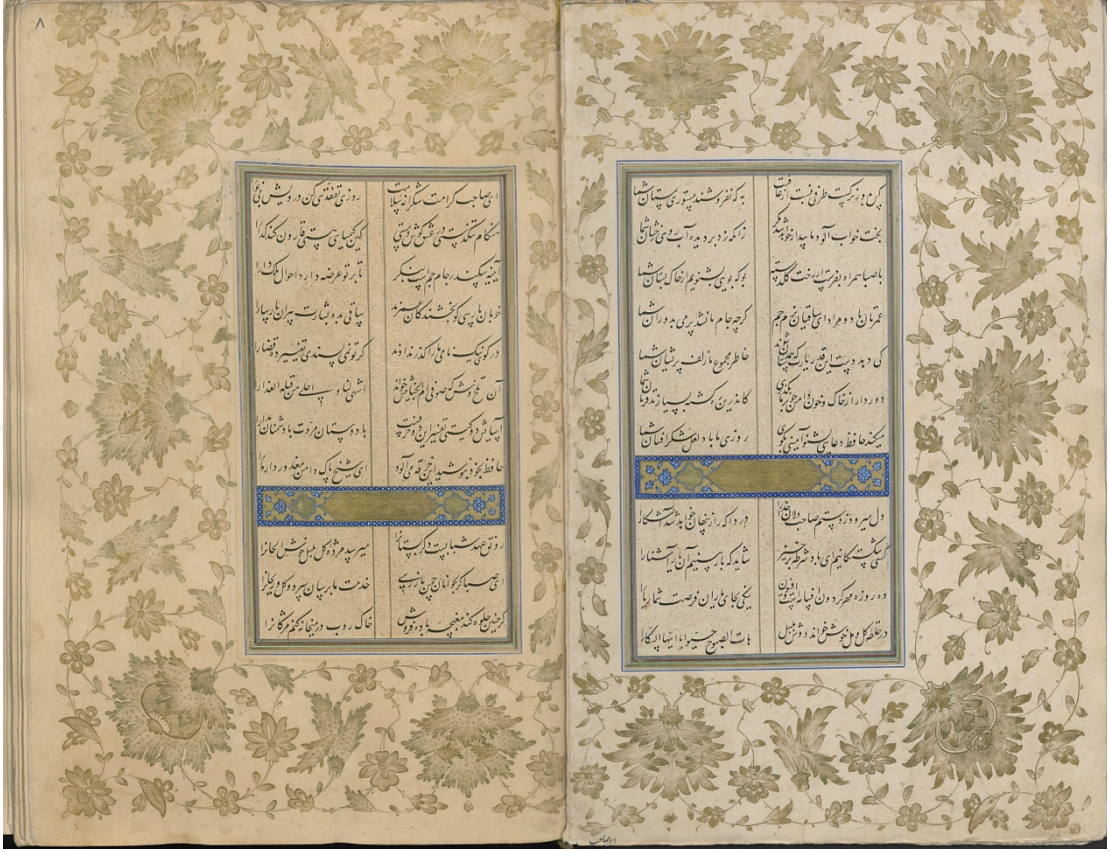 کس بدور نرکست طرفی نبست از عافیت به که نفروشند مستوری بمستان شما
بخت خواب آلود ما بیدار خواهد شد مگر زانکه زد بر دیده آب روی رخشان شما
با صبا همراه بفرست از رخت کلدسته بو که بویی بشنویم از خاک بستان شما
عمرتان باد و مراد ای ساقیان بزم جم کرچه جام ما نشد پر می بدوران شما
کی دهد دست این یارب که همدستان شوند خاطر مجموع ما زلف پریشان شما
دور دار از خاک و خون دامن چو بر ما بکذری کاندرین ره کشته بسیارند قربان شما
میکند حافظ دعایی بشنو آمینی بکوی روزی ما باد لعل شکر افشان شما
دل میرود ز دستم صاحب دلان خدا را دردا که راز پنهان خواهد شد آشکارا
کشتی شکستکانیم ای باد شرطه برخیز شاید که باز بینیم آن یار آشنا را
ده روزه مهر کردون افسانه است و افسون نیکی بجای یاران فرصت شمار یارا
در حلقه کل و مل خوش خواند دوش بلبل هات الصبوح حیوا یا ایها السکارا
ای صاحب
۸
ای صاحب کرامت شکرانه سلامت روزی تفقدی کن درویش بی نوا را
هنکام تنکدستی در عیش کوش و مستی کین کیمیای هستی قارون کند کدا را
آیینه سکندر جام جمست بنکر تا بر تو عرضه دارد احوال ملک دارا
خوبان پارسی کو بخشندکان عمرند ساقی بده بشارت پیران پارسا را
در کوی نیک نامی ما را کذر ندادند کر تو نمی پسندی تغییر ده قضا را
آن تلخ وش که صوفی ام الخبایثش خواند اشهی لنا و احلی من قبلة العذارا
آسایش دو کیتی تفسیر این دو حرفست با دوستان مروت با دشمنان مدارا
حافظ بخود نپوشید این خرقه می آلود ای شیخ پاک دامن معذور دار ما را
رونق عهد شبابست دکر بستان را میرسد مژده کل بلبل خوش الحان را
ای صبا کر بجوانان چمن باز رسی خدمت ما برسان سرو و کل و ریحان را
کر چنین جلوه کند مغبچه باده فروش خاک روب در میخانه کنم مژکان را